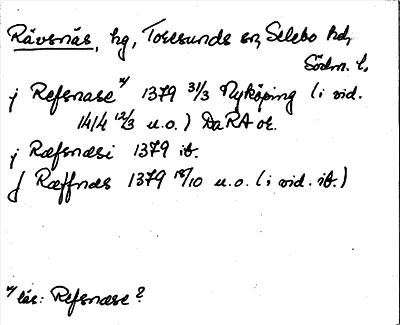 Rävsnäs, hg, Toresunds sn, Selebo hd,
Södm. l.
j Refsnase ×/ 1379 31/3 Nyköping (i vid.
14/4 12/3 u.o.) DaRA or.
j Ræfsnæsi 1379 ib.
j Ræffnæs 1379 18/10 u.o. (i vid. ib.)
×/ läs: Refsnæse?